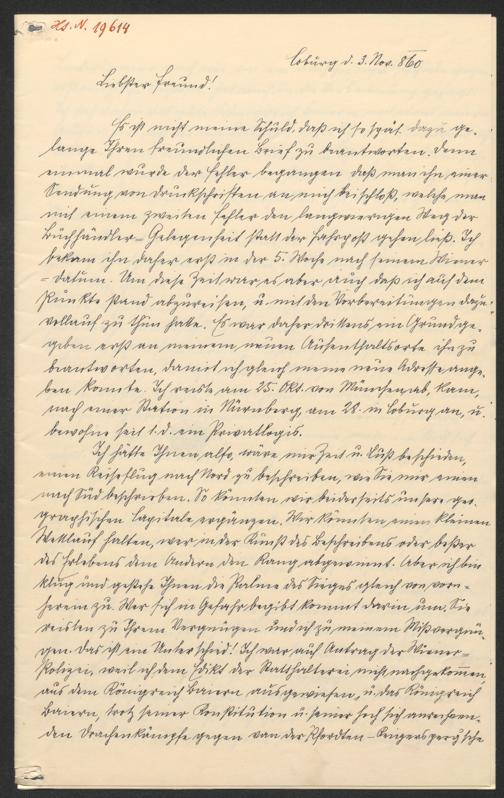 Hs. N. 19614
Coburg d. 3. Nov. 860
Liebster Freund!
Es ist nicht meine Schuld, daß ich so spät dazu ge-
lange Ihren freundlichen Brief zu beantworten. Denn
einmal wurde der Fehler begangen daß man ihn einer
Sendung von Druckschriften an mich beischloß, welche man
mit einem zweiten Fehler den langwierigen Weg der
Buchhändler-Gelegenheit statt der Fahrpost gehen ließ. Ich
bekam ihn daher erst in der 5. Woche nach seinem Wiener
-Datum. Um diese Zeit war es aber auch daß ich auf dem
Punkte stand abzureisen, u. mit den Vorbereitungen dazu
vollauf zu thun hatte. Es war daher drittens ein Grund ge-
geben erst an meinem neuen Aufenthaltsorte ihn zu
beantworten, damit ich gleich meine neue Adresse ange-
ben konnte. Ich reiste am 25. Okt. von München ab, kam,
nach einer Station in Nürnberg, am 28. in Coburg an, u.
bewohne seit 1. d. ein Privatlogis.
Ich hätte Ihnen also, wäre mir Zeit u. Lust beschieden,
einen Reiseflug nach Nord zu beschreiben, wie Sie mir einen
nach Süd beschrieben. So könnten wir beiderseits unsere geo-
graphischen Capitale ergänzen. Wir könnten einen kleinen
Wettlauf halten, wer in der Kunst des Beschreibens oder besser
des Erlebens dem Andern den Rang abgewinnt. Aber ich bin
klug und gestehe Ihnen die Palme des Sieges gleich von vorn-
herein zu. Wer sich in Gefahr begibt kommt darin um. Sie
reisten zu Ihrem Vergnügen und ich zu meinem Mißvergnü-
gen. Das ist ein Unterschied! Ich war auf Antrag der Wiener-
Polizei, weil ich dem Edikt der Statthalterei nicht nachgekommen,
aus dem Königreich Baiern ausgewiesen, u. das Königreich
Baiern, trotz seiner Konstitution u. seiner hoch sich anrechnen-
den Drachenkämpfe gegen van der Pfordten-Reigersperg'sche